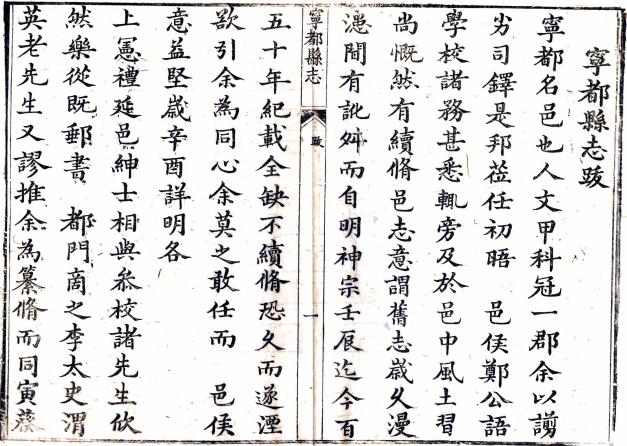 寧都縣志跋
寧都名邑也人文甲科冠一郡余以謭
劣司鐸是邦莅任初晤 邑侯鄭公語
學校諸務甚悉輒旁及於邑中風土習
尚慨然有續脩邑志意謂舊志歲久漫
漶間有訛舛而自明神宗壬辰迄今百
寧都縣志
跋
一
五十年紀載全缺不續脩恐久而遂湮
欲引余為同心余莫之敢任而 邑侯
意益堅歲辛酉詳明各
上憲禮延邑紳士相與叅校諸先生欣
然樂從既郵書 都門啇之李太史渭
英老先生又謬推余為纂脩而同寅蔡